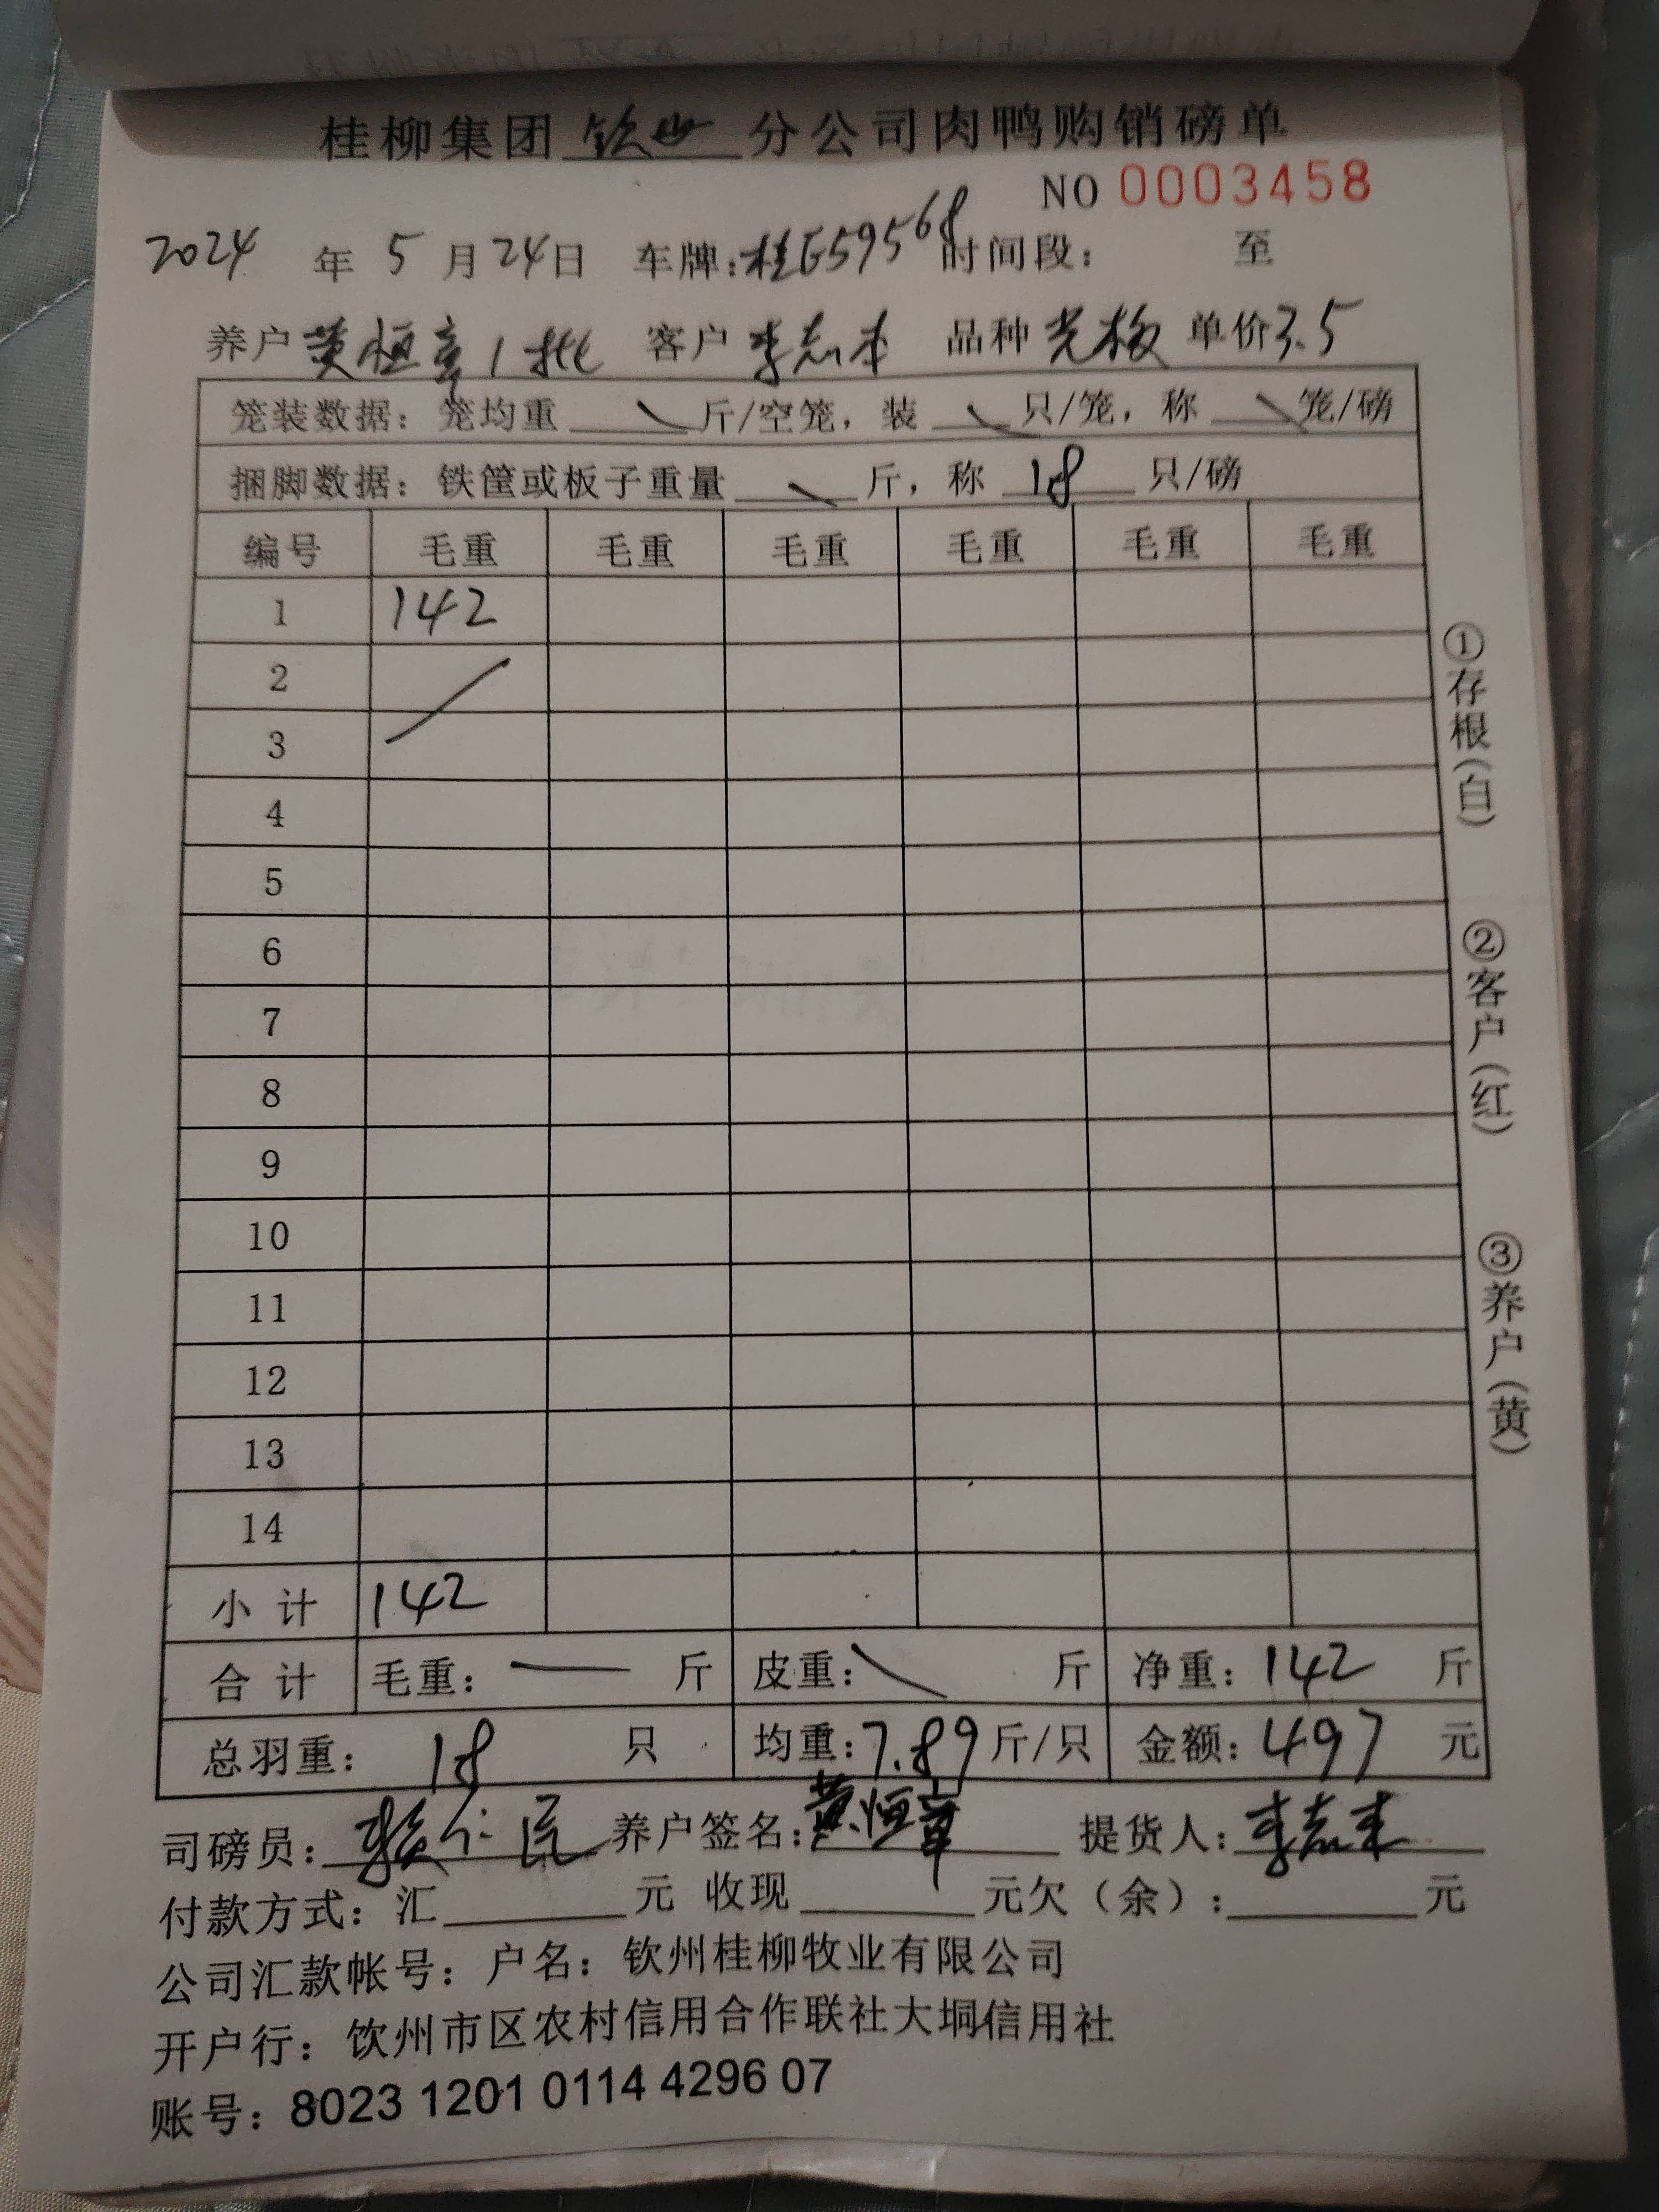 桂柳集团 钦州 分公司肉鸭购销磅单
NO 0003458
2024 年 5 月 24 日 车牌:桂E59568 时间段: 至
养户 黄恒章1批 客户 李志 品种 光板 单价 3.5
笼装数据: 笼均重 斤/空笼, 装 只/笼, 称 笼/磅
捆脚数据: 铁筐或板子重量 斤, 称 18 只/磅
编号 毛重 毛重 毛重 毛重 毛重 毛重
1 142
2
3
4
5
6
7
8
9
10
11
12
13
14
小计 142
合计 毛重: 斤 皮重: 斤 净重: 142 斤
总羽重: 18 只 均重: 7.89 斤/只 金额: 497 元
司磅员: 养户签名: 黄恒章 提货人: 李志
付款方式: 汇 元 收现 元欠(余): 元
公司汇款帐号: 户名: 钦州桂柳牧业有限公司
开户行: 钦州市区农村信用合作联社大垌信用社
账号: 8023 1201 0114 4296 07
①存根(白)
②客户(红)
③养户(黄)